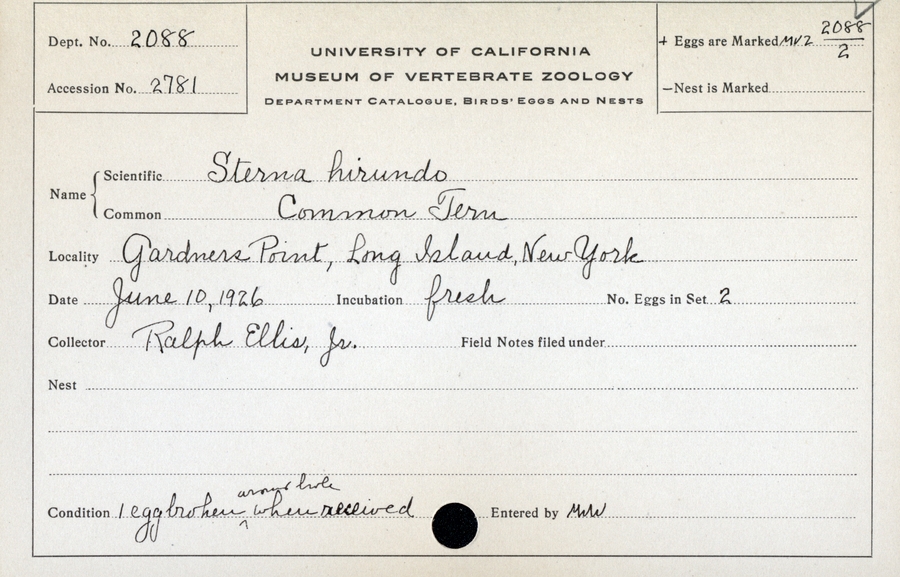 Dept. No. 2088
Accession No. 2781
UNIVERSITY OF CALIFORNIA
MUSEUM OF VERTEBRATE ZOOLOGY
DEPARTMENT CATALOGUE, BIRDS' EGGS AND NESTS
+ Eggs are Marked MVZ 2088/2
—Nest is Marked
Name
Scientific Sterna hirundo
Common Common Tern
Locality Gardners Point, Long Island, New York
Date June 10, 1926 Incubation fresh No. Eggs in Set 2
Collector Ralph Ellis, Jr. Field Notes filed under
Nest
around hole
Condition 1 egg broken ^ when received Entered by